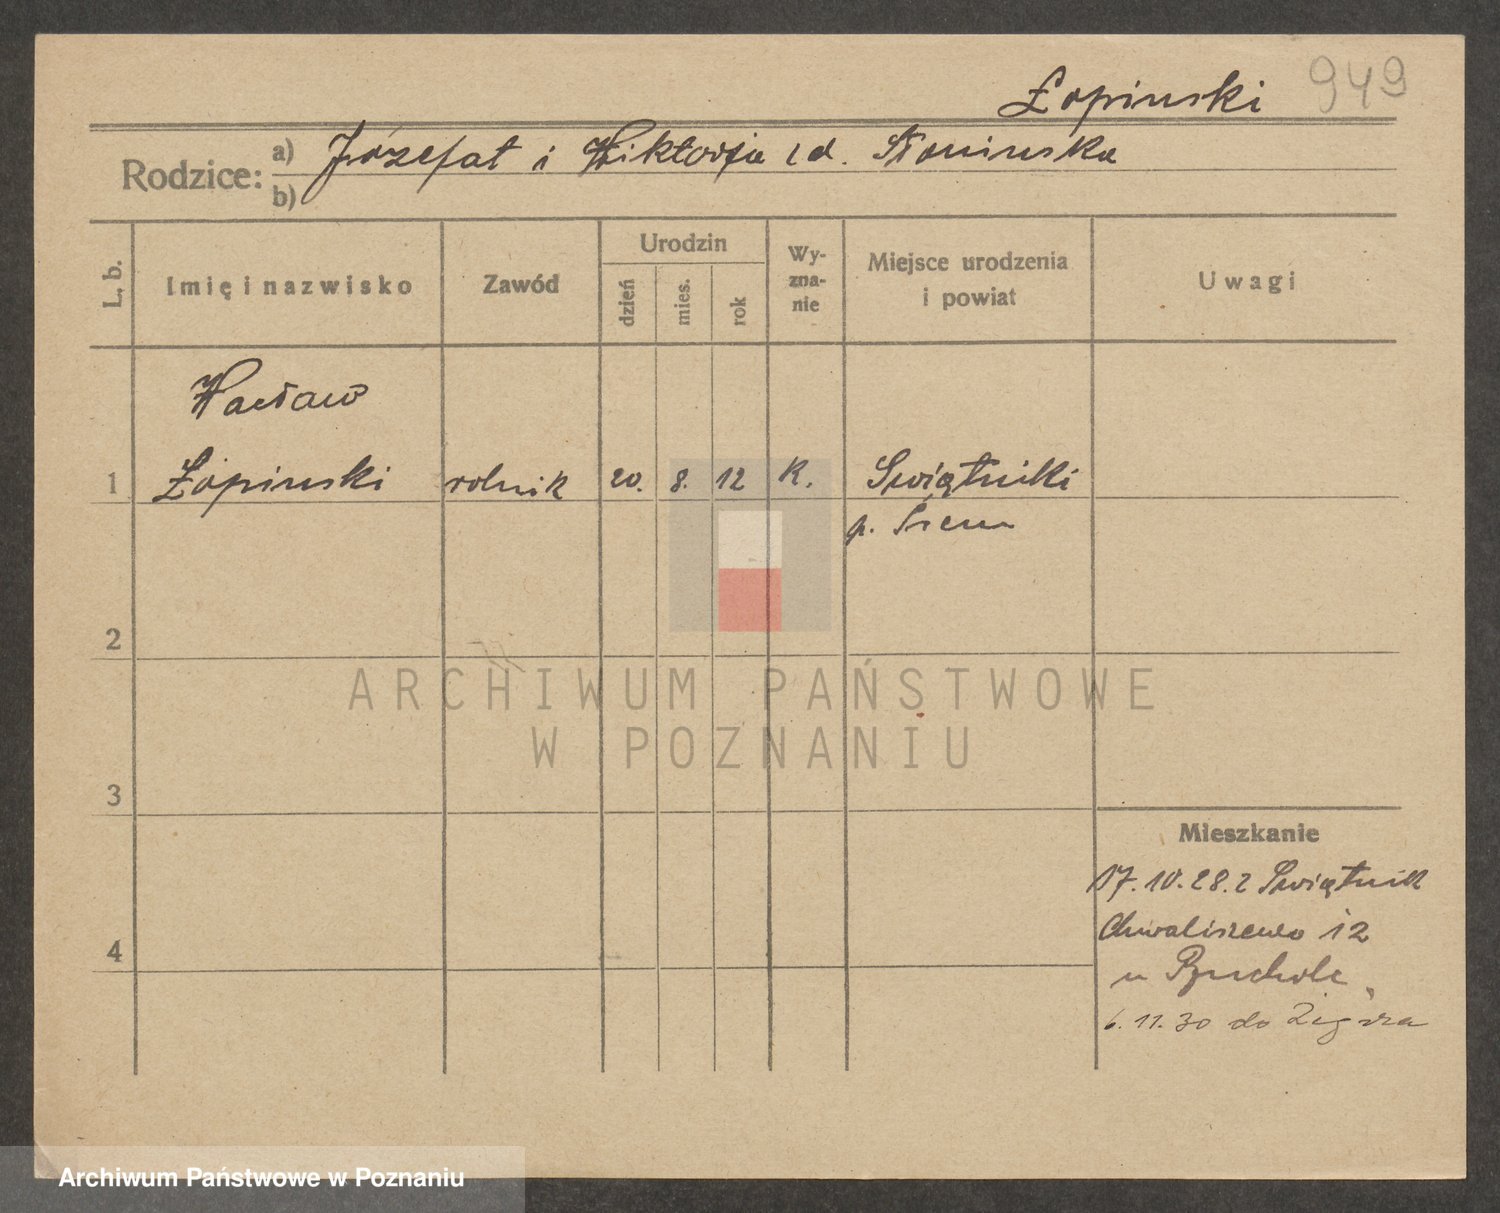 Łopinski 949
Rodzice:
a) Józefat i Wiktorja z d. Słominska
b)
L. b.
Imię i nazwisko
Zawód
Urodzin
dzień
mies.
rok
Wy-
zna-
nie
Miejsce urodzenia
i powiat
Uwagi
Wacław
1 Łopinski rolnik 20. 8. 12 K. Swiątniki
p. Śrem
2
ARCHIWUM PAŃSTWOWE
W POZNANIU
3
Mieszkanie
17.10.28. z Swiątnik
Chwaliszewo 12
4
u
6.11.30 do
Archiwum Państwowe w Poznaniu